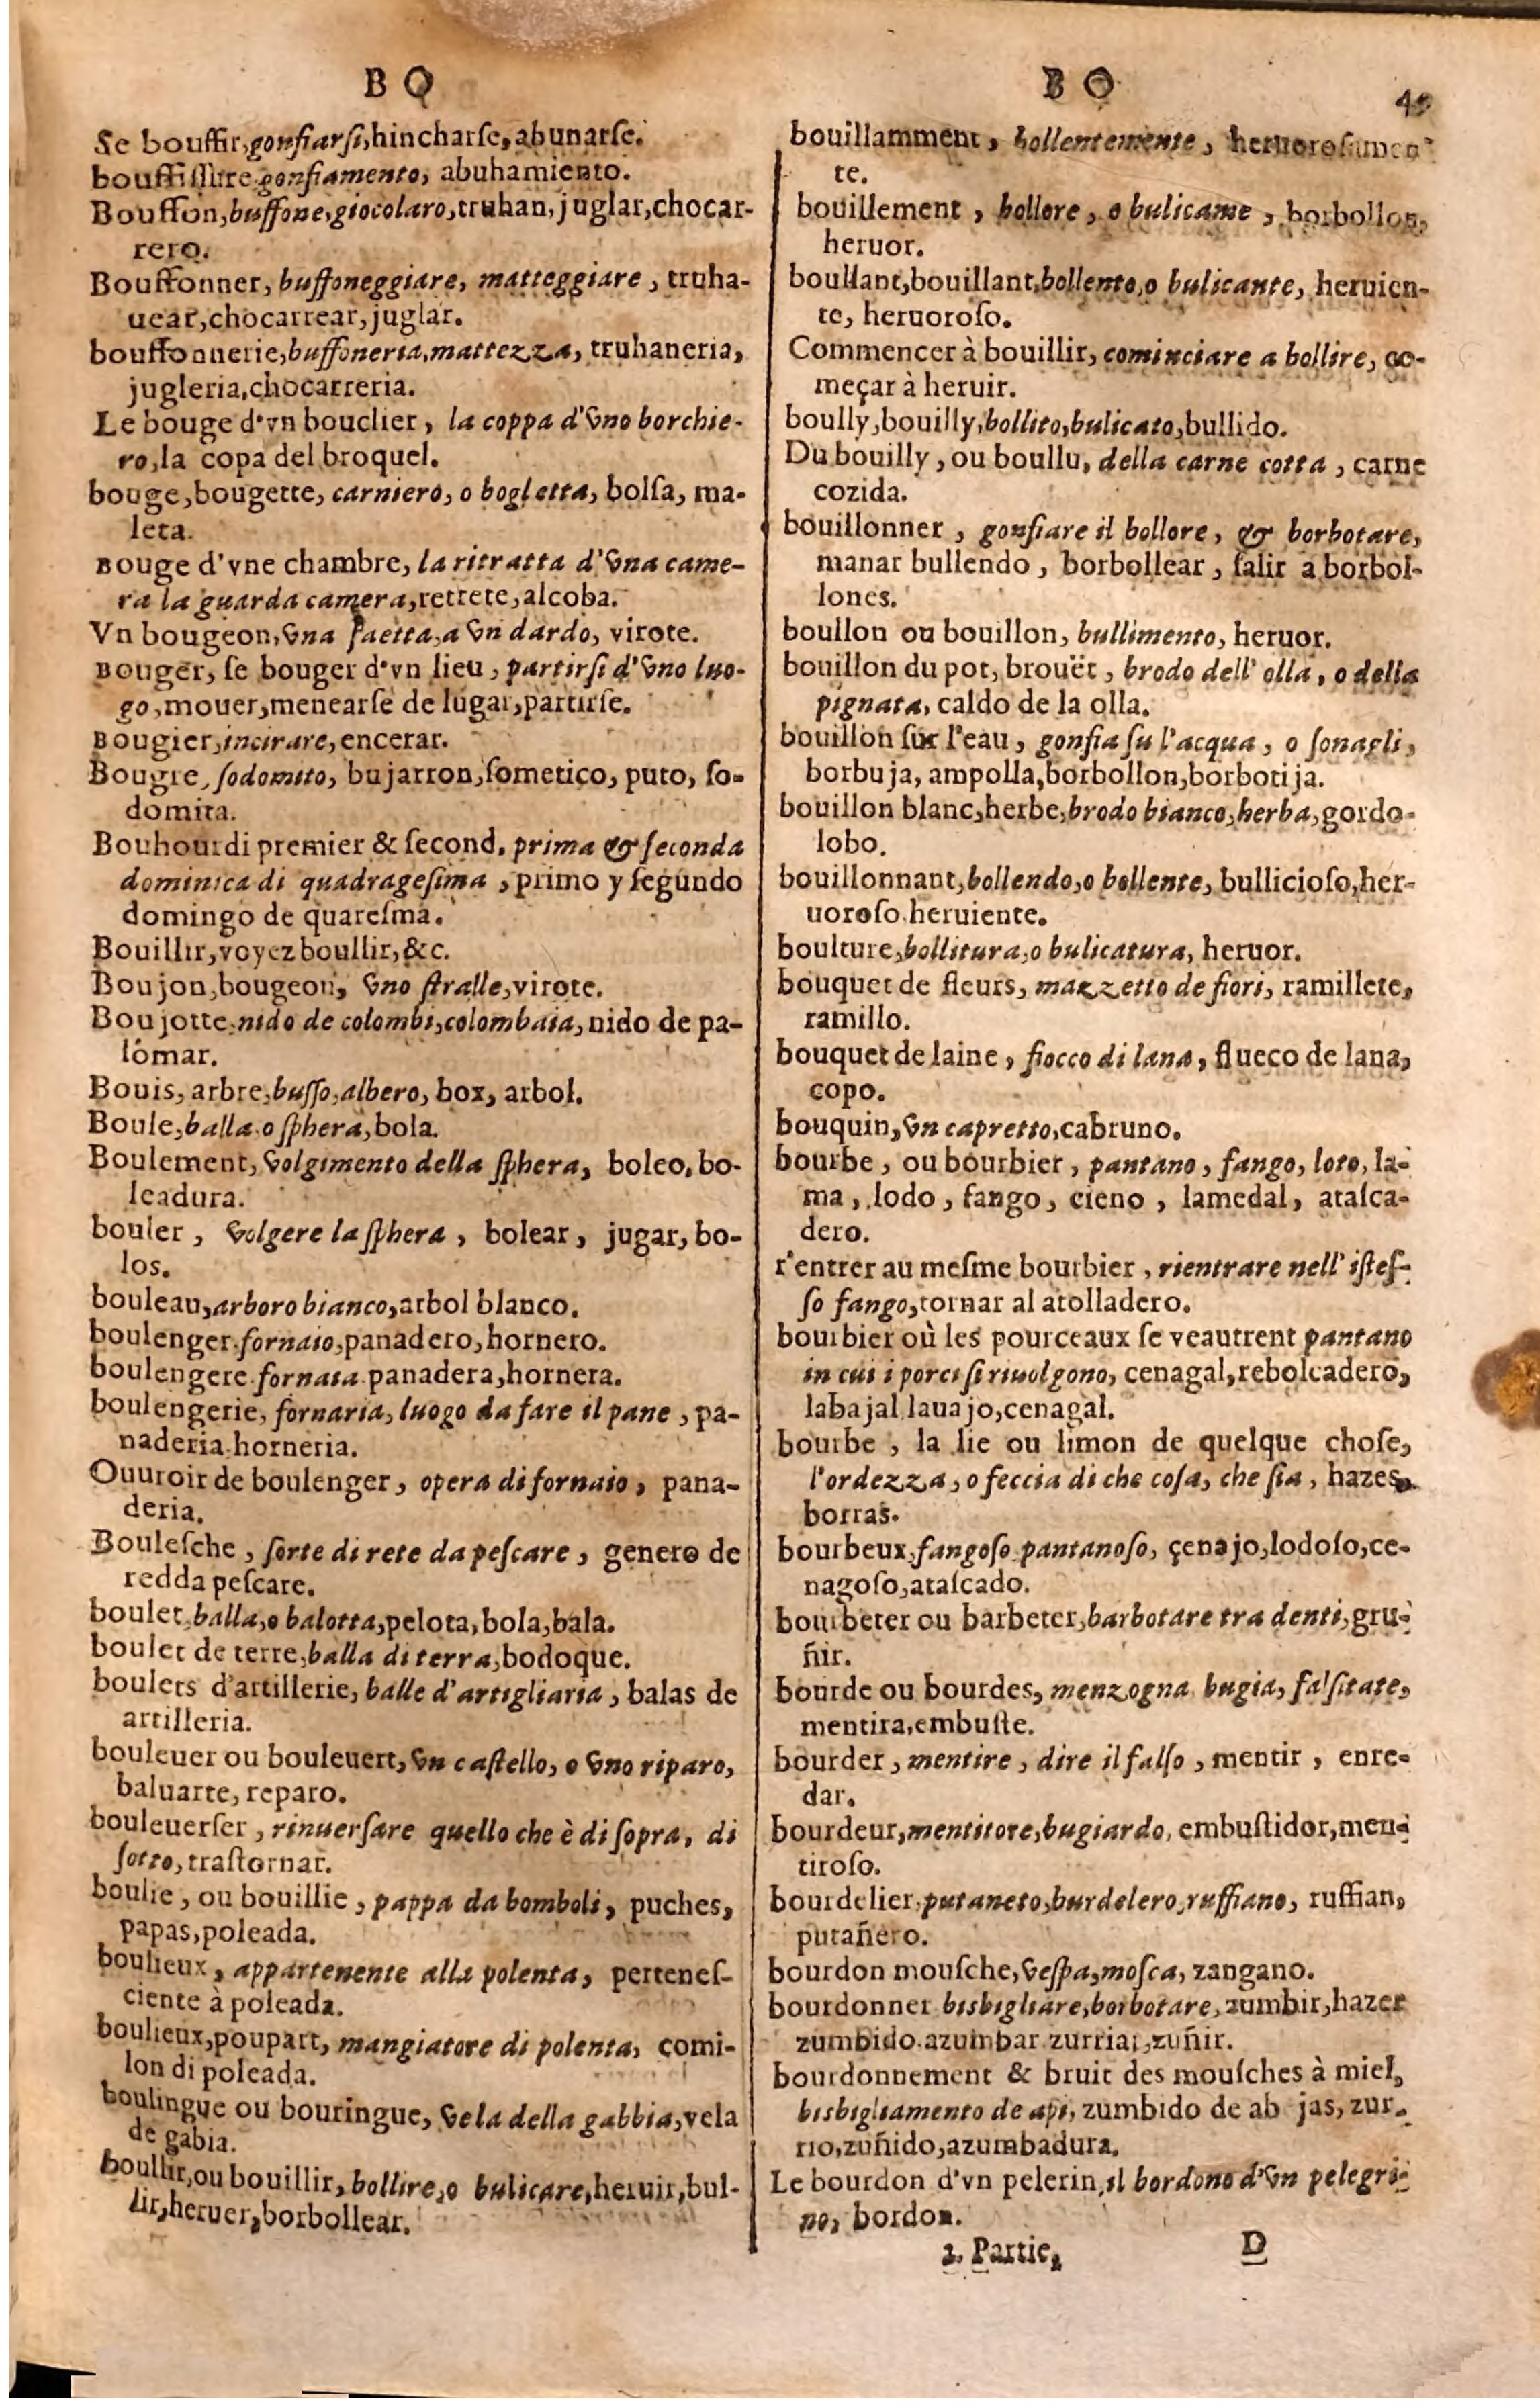 B O
Se bouffir, gonfiarſi, hincharſe, abunarſe.
bouffiſſure gonfiamento, abuhamiento.
Bouffon, buffone, giocolaro, truhan, juglar, chocar-
rero.
Bouffonner, buffoneggiare, matteggiare, truha-
uear, chocarrear, juglar.
bouffonnerie, buffoneria, mattezza, truhaneria,
jugleria, chocarreria.
Le bouge d'vn bouclier, la coppa d'vno borchie-
ro, la copa del broquel.
bouge, bougette, carniero, o bogletta, bolſa, ma-
leta.
Bouge d'vne chambre, la ritratta d'vna came-
ra la guarda camera, retrete, alcoba.
Vn bougeon, vna ſaetta, a vn dardo, virote.
Bouger, ſe bouger d'vn lieu, partirſi d'vno luo-
go, mouer, menearſe de lugar, partirſe.
Bougier, incirare, encerar.
Bougre, ſodomito, bujarron, ſometico, puto, ſo-
domita.
Bouhourdi premier & ſecond, prima & ſeconda
dominica di quadrageſima, primo y ſegundo
domingo de quareſma.
Bouillir, voyez boullir, &c.
Boujon, bougeon, vno ſtralle, virote.
Boujotte, nido de colombi, colombaia, nido de pa-
lomar.
Bouis, arbre, buſſo, albero, box, arbol.
Boule, balla o ſphera, bola.
Boulement, volgimento della ſphera, boleo, bo-
leadura.
bouler, volgere la ſphera, bolear, jugar, bo-
los.
bouleau, arboro bianco, arbol blanco.
boulenger. fornaio, panadero, hornero.
boulengere. fornaia. panadera, hornera.
boulengerie, fornaria, luogo da fare il pane, pa-
naderia. horneria.
Ouuroir de boulenger, opera di fornaio, pana-
deria.
Bouleſche, ſorte di rete da peſcare, genero de
redda peſcare.
boulet, balla, o balotta, pelota, bola, bala.
boulet de terre, balla di terra, bodoque.
boulets d'artillerie, balle d'artigliaria, balas de
artilleria.
bouleuer ou bouleuert, vn caſtello, o vno riparo,
baluarte, reparo.
bouleuerſer, rinuerſare quello che è di ſopra, di
ſotto, traſtornar.
boulie, ou bouillie, pappa da bomboli, puches,
papas, poleada.
boulieux, appartenente alla polenta, perteneſ-
ciente à poleada.
boulieux, poupart, mangiatore di polenta, comi-
lon di poleada.
boulingue ou bouringue, vela della gabbia, vela
de gabia.
boullir, ou bouillir, bollire, o bulicare, heruir, bul-
lir, heruer, borbollear.
B O
bouillamment, bollentemente, heruoroſamen-
te.
bouillement, bollore, o bulicame, borbollon,
heruor.
boullant, bouillant, bollento, o bulicante, heruien-
te, heruoroſo.
Commencer à bouillir, cominciare a bollire, co-
meçar à heruir.
boully, bouilly, bollito, bulicato, bullido.
Du bouilly, ou boullu, della carne cotta, carne
cozida.
bouillonner, gonfiare il bollore, & borbotare,
manar bullendo, borbollear, ſalir a borbol-
lones.
boullon ou bouillon, bullimento, heruor.
bouillon du pot, brouët, brodo dell' olla, o della
pignata, caldo de la olla.
bouillon ſur l'eau, gonfia ſu l'acqua, o ſonagli,
borbuja, ampolla, borbollon, borbotija.
bouillon blanc, herbe, brodo bianco, herba, gordo-
lobo.
bouillonnant, bollendo, o bollente, bullicioſo, her-
uoroſo. heruiente.
boulture, bollitura, o bulicatura, heruor.
bouquet de fleurs, mazzetto de fiori, ramillete,
ramillo.
bouquet de laine, fiocco di lana, flueco de lana,
copo.
bouquin, vn capretto, cabruno.
bourbe, ou bourbier, pantano, fango, loto, la-
ma, lodo, fango, cieno, lamedal, atalca-
dero.
r'entrer au meſme bourbier, rientrare nell' iſteſ-
ſo fango, tornar al atolladero.
bourbier où les pourceaux ſe veautrent pantano
in cui i porci ſi riuolgono, cenagal, rebolcadero,
labajal lauajo, cenagal.
bourbe, la lie ou limon de quelque choſe,
l'ordezza, o feccia di che coſa, che ſia, hazes,
borras.
bourbeux, fangoſo pantanoſo, çenajo, lodoſo, ce-
nagoſo, ataſcado.
bourbeter ou barbeter, barbotare tra denti, gru-
ñir.
bourde ou bourdes, menzogna bugia, falſitate,
mentira, embuſte.
bourder, mentire, dire il falſo, mentir, enre-
dar.
bourdeur, mentitore, bugiardo, embuſtidor, men-
tiroſo.
bourdelier, putaneto, burdelero, ruffiano, ruffian,
putañero.
bourdon mouſche, veſpa, moſca, zangano.
bourdonner bisbigliare, borbotare, zumbir, hazer
zumbido. azumbar zurriar, zuñir.
bourdonnement & bruit des mouſches à miel,
bisbigliamento de api, zumbido de ab jas, zur-
rio, zuñido, azumbadura.
Le bourdon d'vn pelerin, il bordono d'vn pelegri-
no, bordon.
1. Partie, D